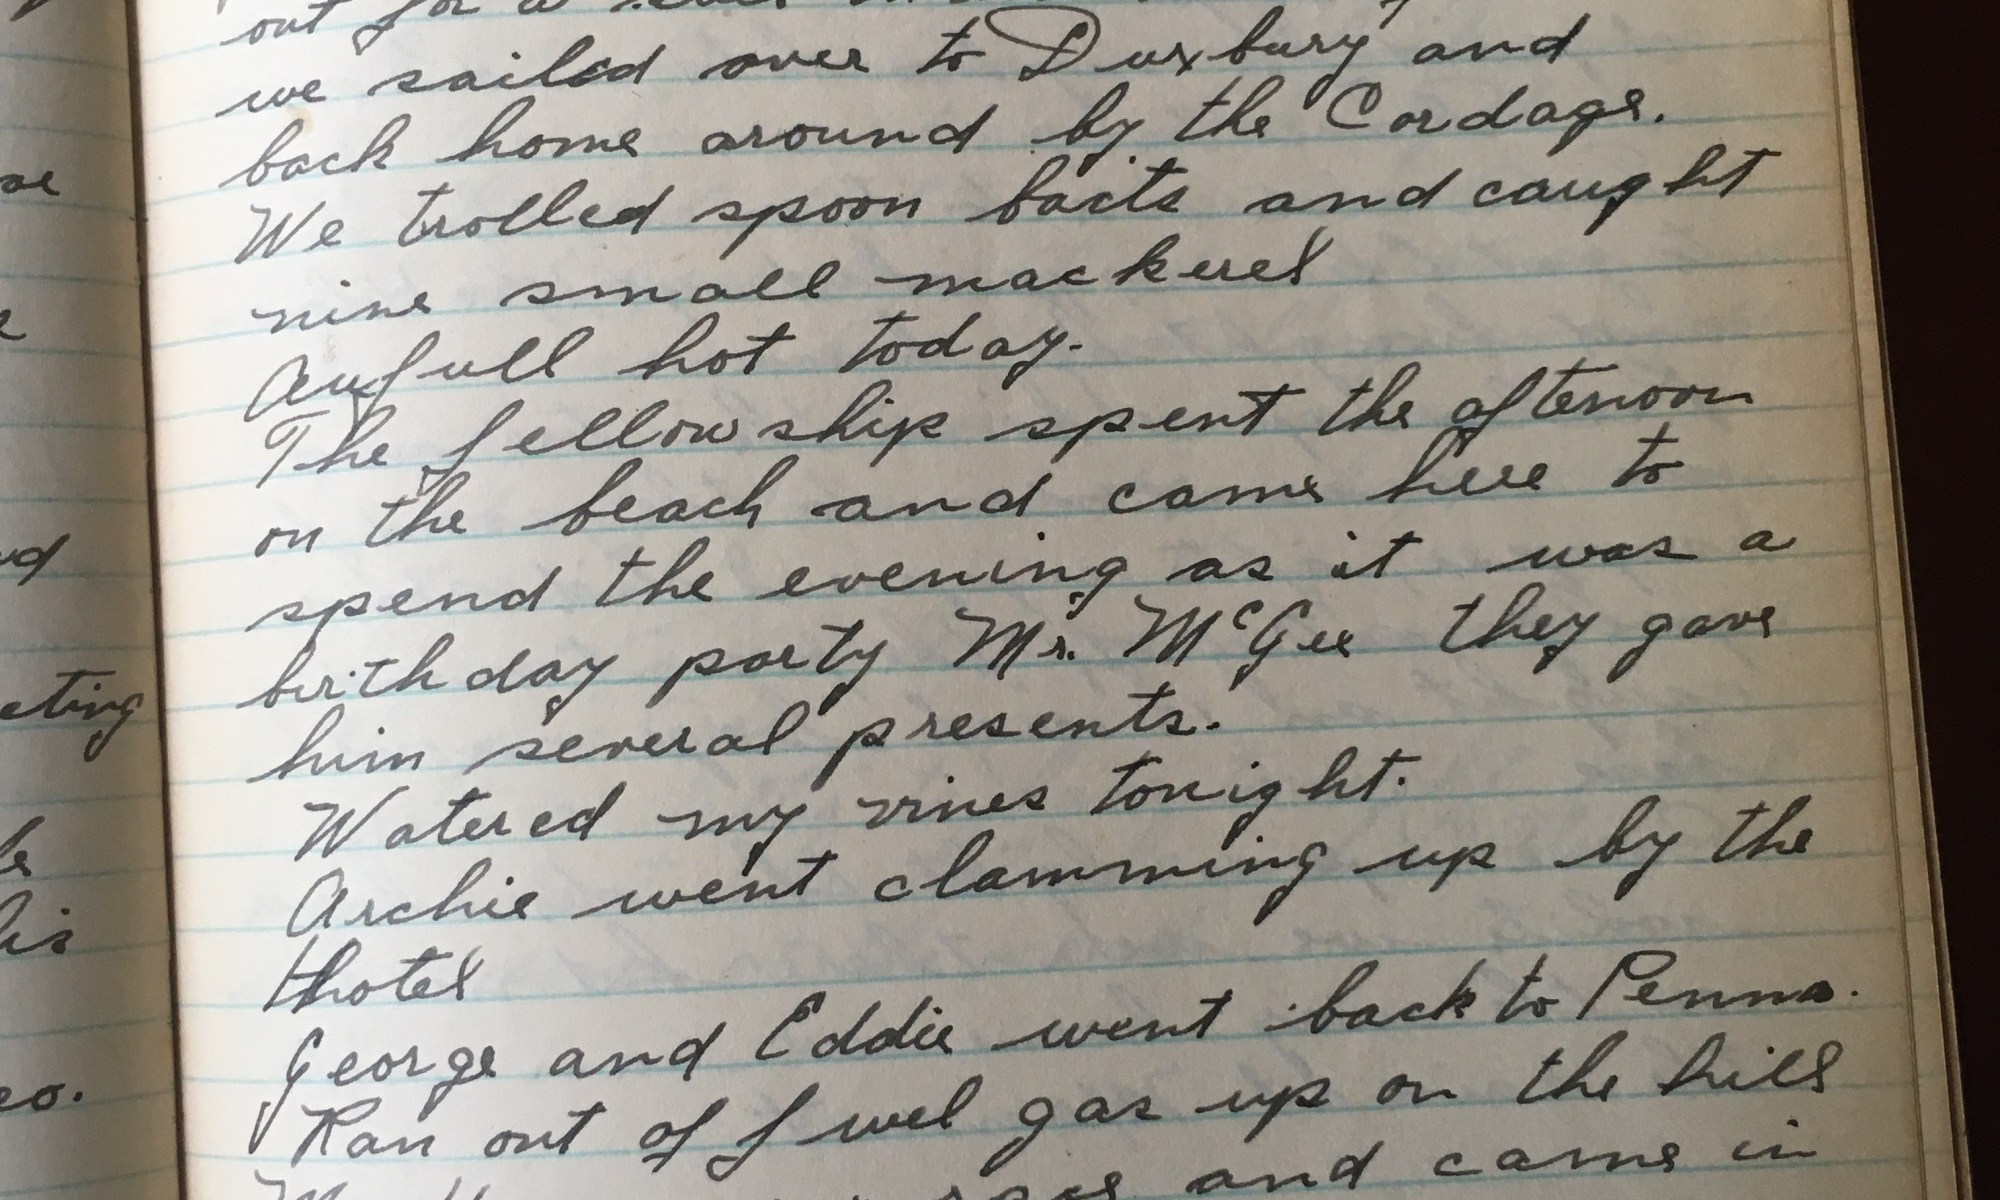 out for a
we sailed over to Duxbury and
back home around by the Cordage.
We trolled spoon baits and caught
nine small mackerel
Awfull hot today.
The fellowship spent the afternoon
on the beach and came here to
spend the evening as it was a
birthday party Mr. McGee they gave
him several presents.
Watered my vines tonight.
Archie went clamming up by the
Hotel
George and Eddie went back to Penna.
Ran out of fuel gas up on the hill
and came in
eting
his